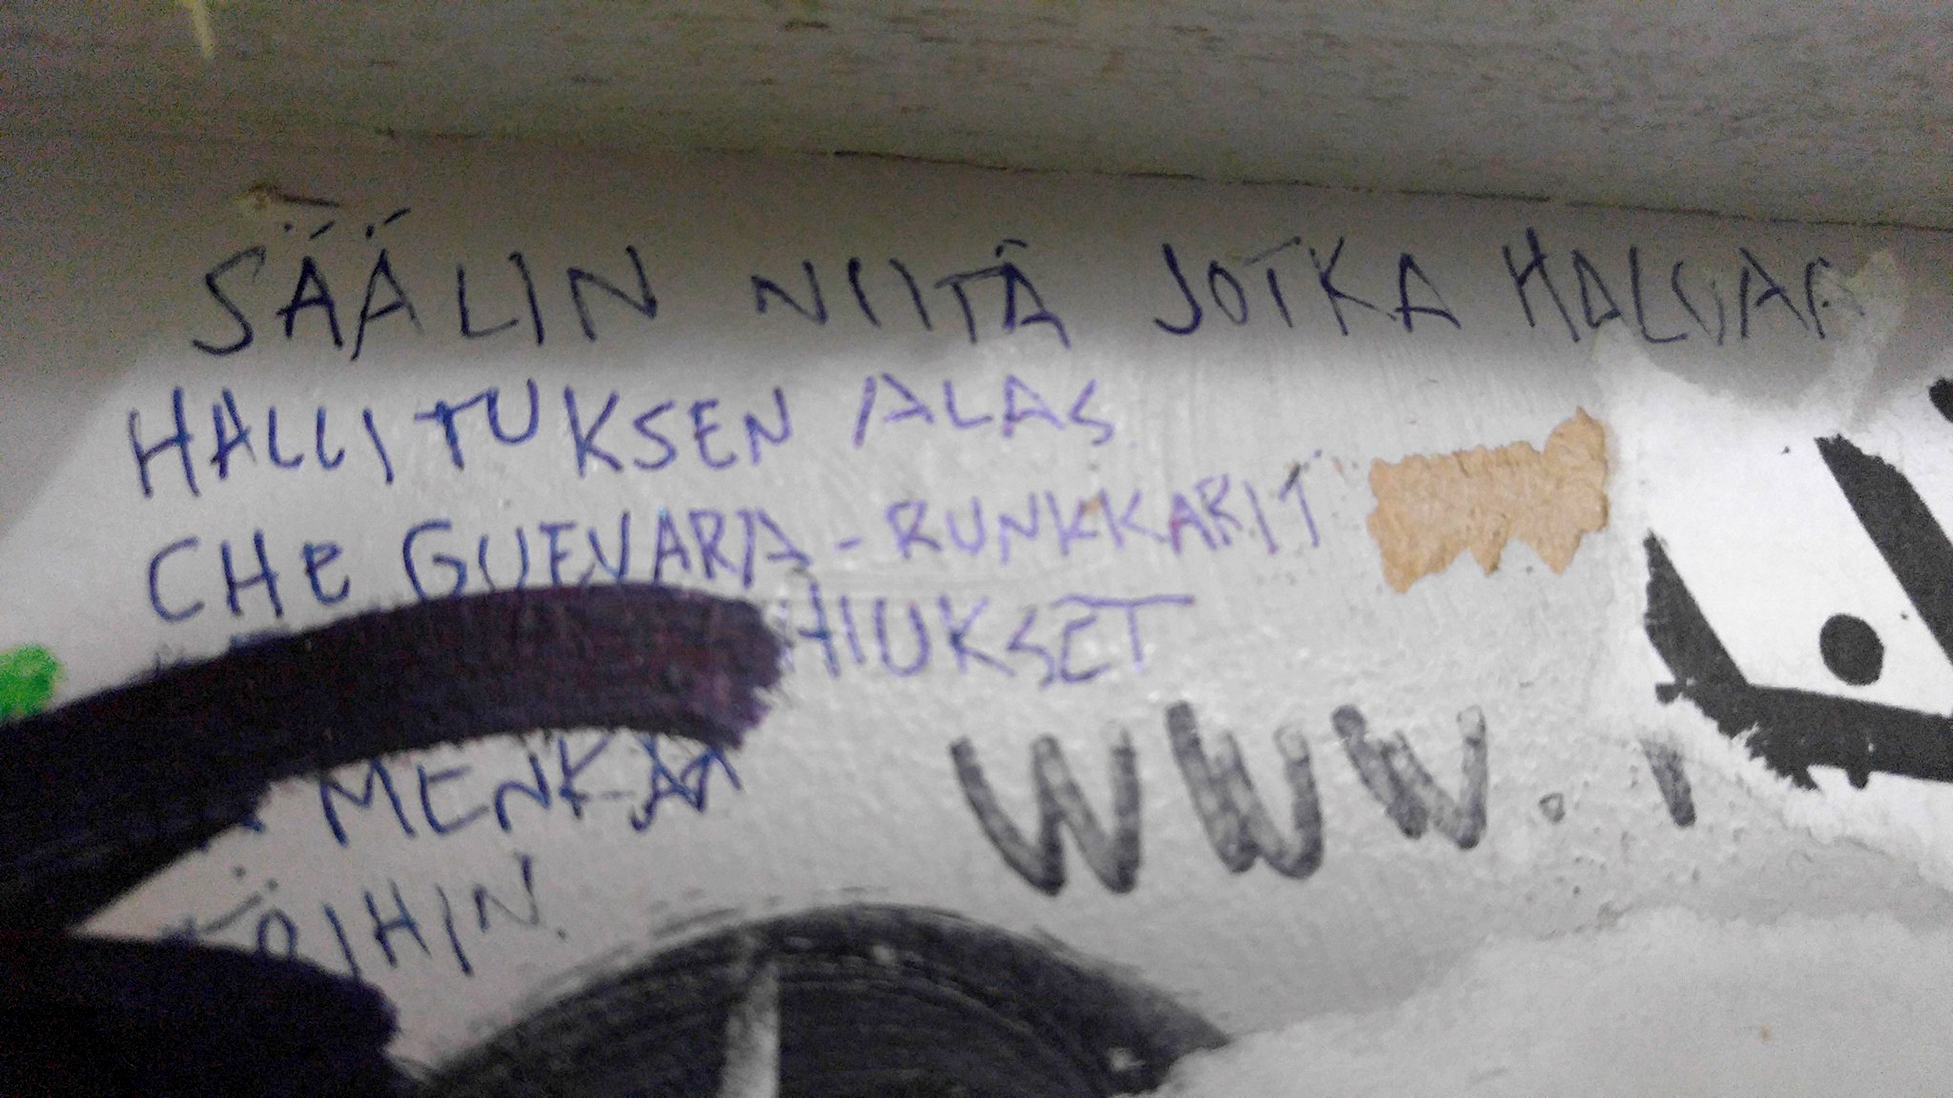 SÄÄLIN NIITÄ JOTKA HALUAA
HALLITUKSEN ALAS
CHE GUEVARA-RUNKKARIT
HIUKSET
MENKÄÄ
TÖIHIN.
WWW.